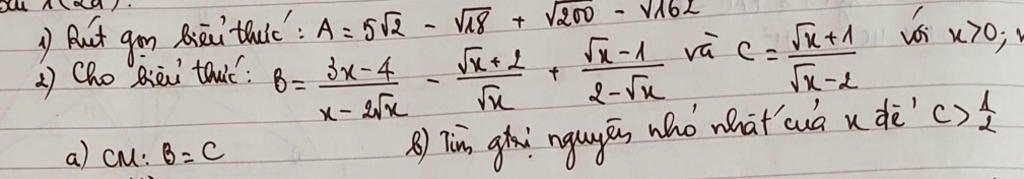 1) Rút gọn biểu thức: A = 5√2 - √18 + √200 - √162
2) Cho biểu thức: B = (3x-4)/(x-2√x) - (√x+2)/√x + (√x-1)/(2-√x) và C = (√x+1)/(√x-2) với x>0;
a) CM: B = C b) Tìm gtrị nguyên nhỏ nhất của x để C > 1/2